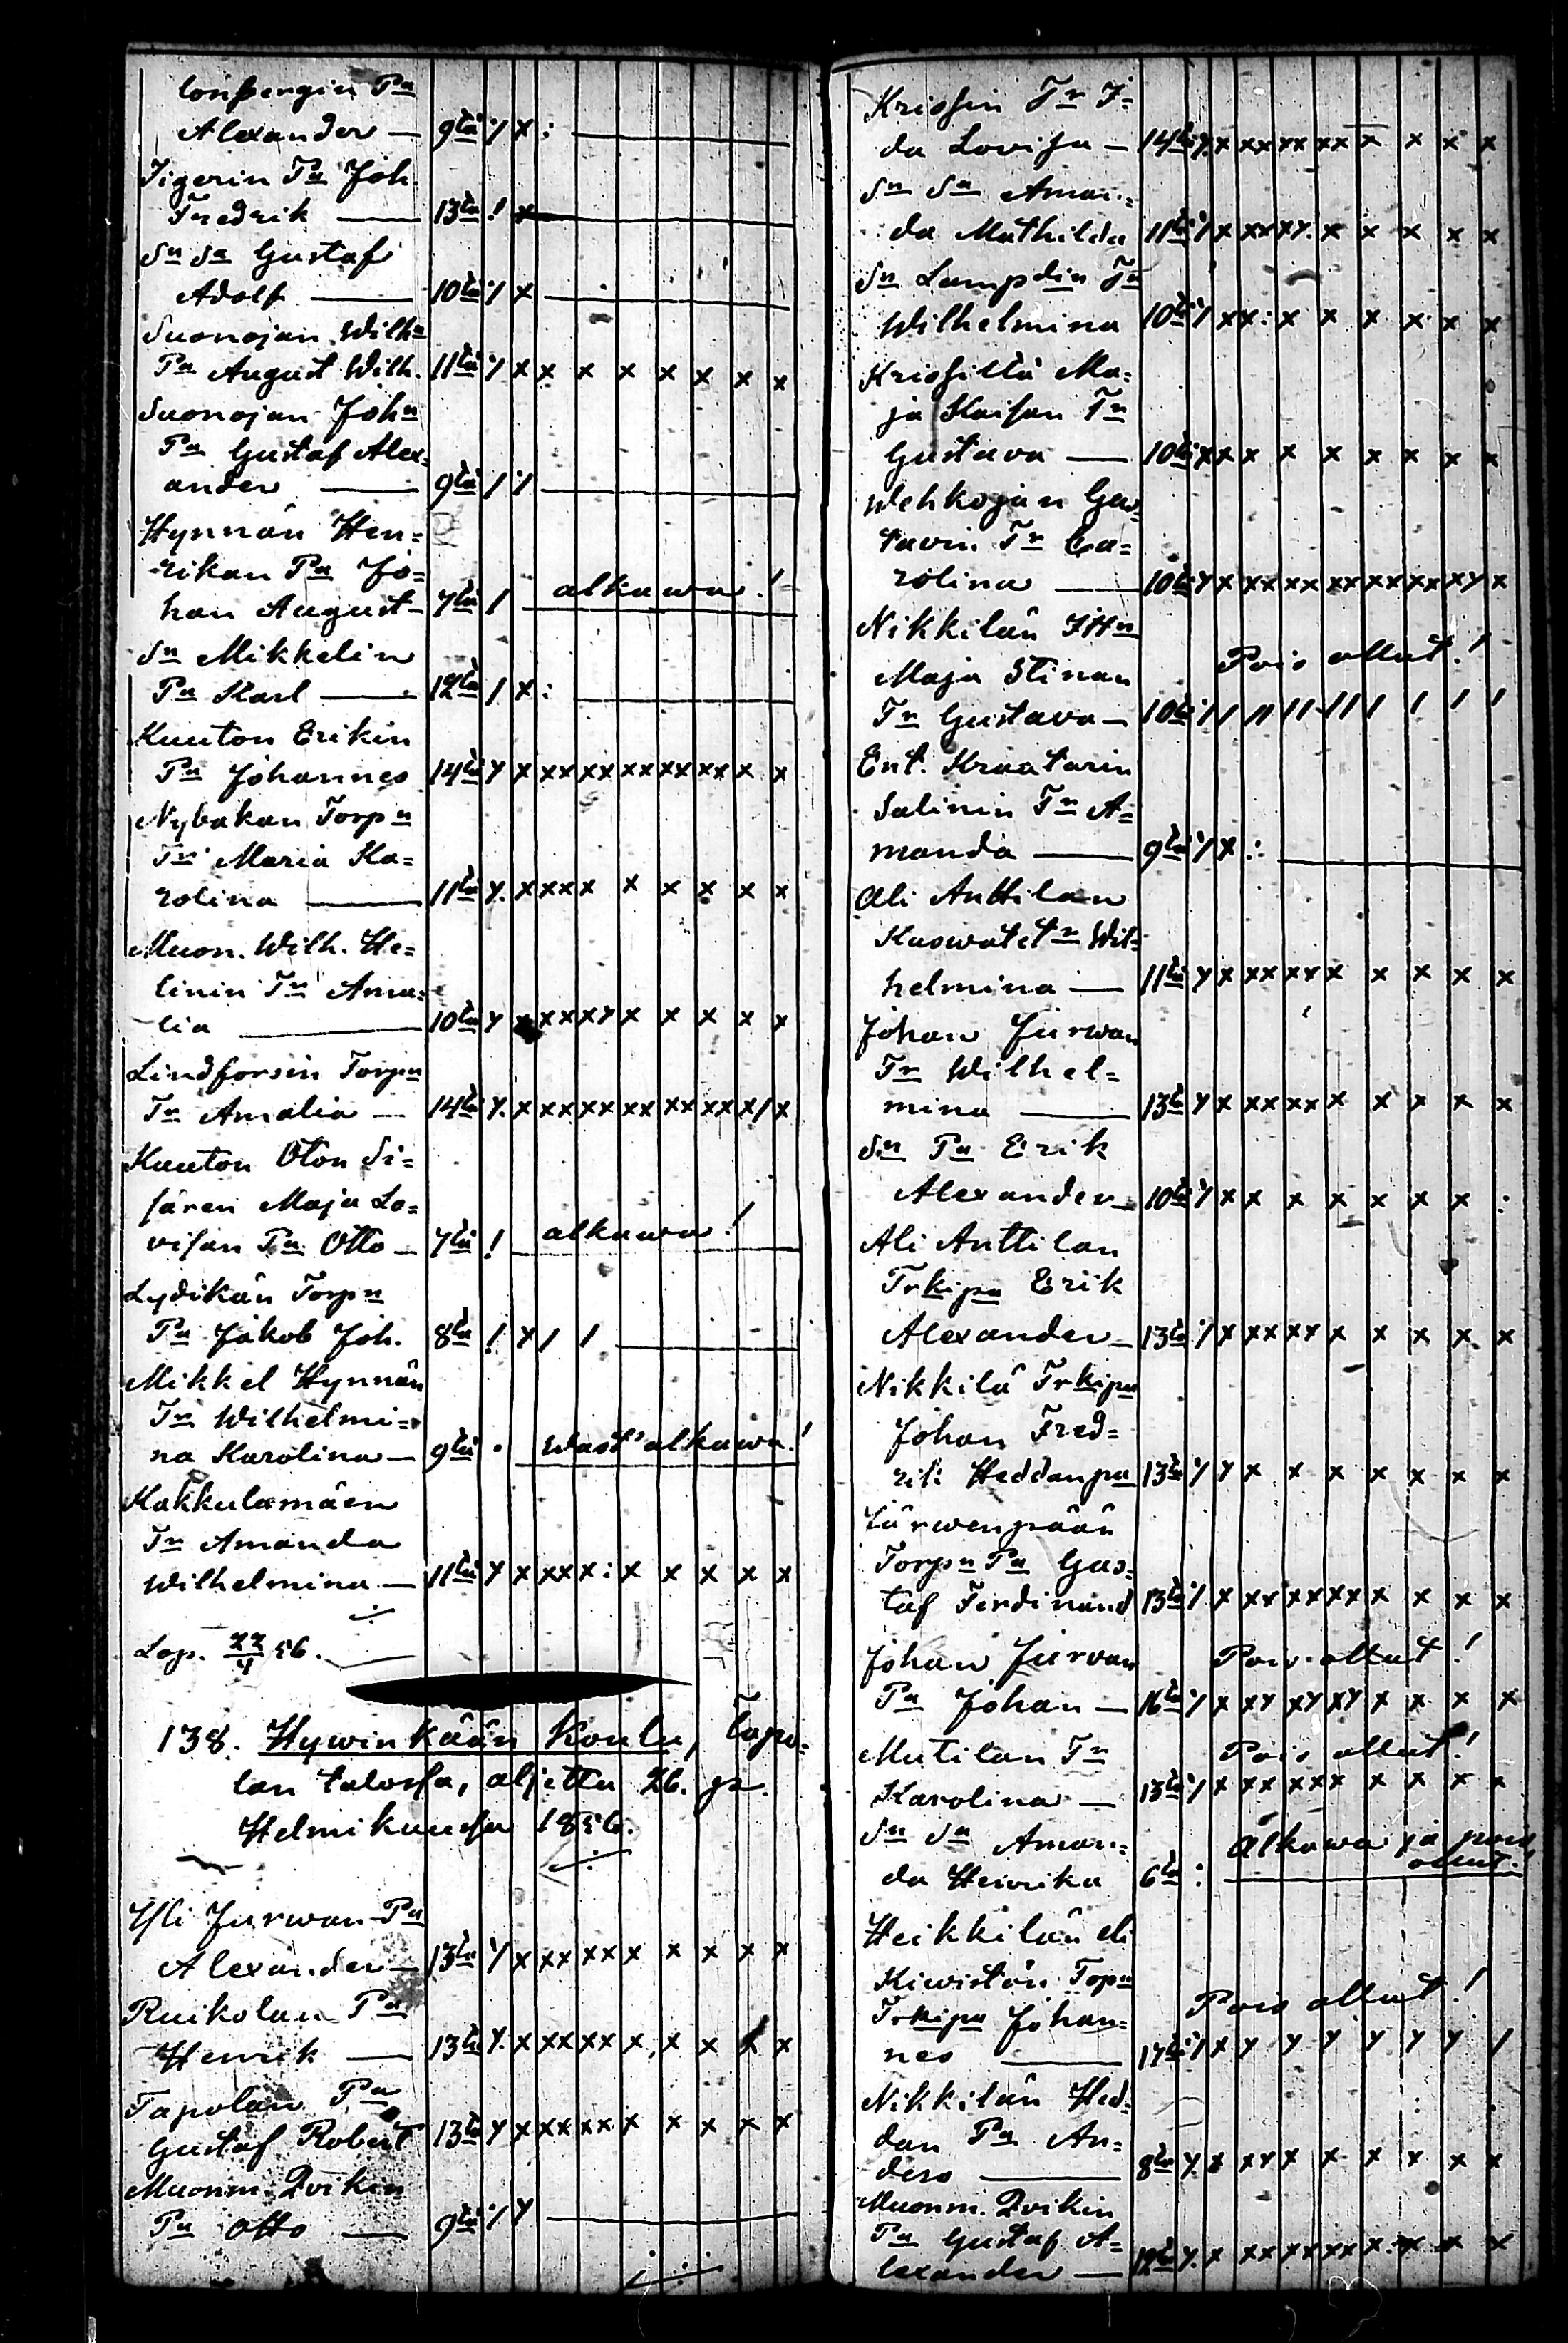 lonbergin Pa
Alexander — 9ta ⁒ x :
Tigerin Pa Joh.
Fredrik — 13ta ! x
Sn Sa Gustaf
Adolf — 10ta ⁒ x
Suonojan Wilhn
Pa August Wilh. 11ta ⁒ x x x x x x x x
Suonojan John
Pa Gustaf Alex=
ander — 9ta / ⁒
Hynnän Hen=
rikan Pa Jo=
han August — 7ta / alkawa!
Sn Mikkelin
Pa Karl — 12ta / x :
Kuuton Erikin
Pa Johannes 14ta y x xx xx xx xx xx x x
Nybakan Torpn
Tr Maria Ka=
rolina — 11ta y. x xx x x x x x x
Muon. Wilh. He=
linin Tr Ama=
lia — 10ta y x xx xy x x x x x
Lindforsin Torpn
Tr Amalia — 14ta y. x xx xx xx xx xx x/ x
Kuuton Oton Si=
saren Maja Lo=
visan Pa Otto — 7ta ! alkawa!
Lydikän Torpn
Pa Jakob Joh. 8ta ! x / /
Mikkel Hynnän
Tr Wilhelmi=
na Karolina — 9ta . Wast' alkawa!
Kakkulamäen
Tr Amanda
Wilhelmina — 11ta y x xx x : x x x x x
Lop. 22/4 56.
138. Hywinkään Koulu, Tapo=
lan talossa, aljettu 26. p.
Helmikuussa 1856.
Yli Jurwan Pa
Alexander — 13ta ⁒ x xx xx x x x x x
Ruikolan Pa
Henrik — 13ta y. x xx xx x, x x x x
Tapolan Pa
Gustaf Robert 13ta y x xx xx x x x x x
Muonm. Qvikin
Pa Otto — 9ta ⁒ y
Krissin Tr I=
da Lovisa — 14ta y. x xx xx xx x x x x
Sn Sa Aman=
da Mathilda 11ta ⁒ x xx xy. x x x x x
Sn Lampdin Tr
Wilhelmina 10ta ⁒ xx : x x x x x x
Krissillä Ma=
ja Kaisan Tr
Gustava — 10ta xx x x x x x x x
Wehkojan Gus=
tavin Tr Ca=
rolina — 10ta y x xx xx xx xx xx xy x
Nikkilän ItHn
Maja Stinan Pois ollut!
Tr Gustava — 10ta ⁒ / // // // / / / /
Ent. Kraatarin
Salinin Tr A=
manda — 9ta ⁒ x :
Ali Anttilan
Kaswatetn Wil=
helmina — 11ta y x xx xy x x x x x
Johan Jürwan
Tr Wilhel=
mina — 13ta y x xx xx x x x x x
Sn Pa Erik
Alexander — 10ta ⁒ x x x x x x x :
Ali Anttilan
Trkipa Erik
Alexander — 13ta ⁒ x xx xx x x x x x
Nikkilä Trkipa
Johan Fred=
rik Heddan pa 13ta ⁒ y x x x x x x x
Järwenpään
Torpn Pa Gus=
taf Ferdinand 13ta ⁒ x xx xx xx x x x x
Johan Jürwan Pois ollut!
Pa Johan — 16ta ⁒ x xy xy xy x x x x
Mutilan Tr Pois ollut!
Karolina — 13ta ⁒ x xx xxx x x x x
Sn Sa Aman= Alkawa ja pois
da Henrika 6ta : ollut!
Heikkilän eli
Kiwistön Topn
Trkipa Johan= Pois ollut!
nes — 17ta ⁒ x y y y y y y /
Nikkilän Hed=
dan Pa An=
ders — 8ta y. x xy x x x x x x
Muonm. Qvikin
Pa Gustaf A=
lexander — 12ta y. x xx xx xx x. x x x